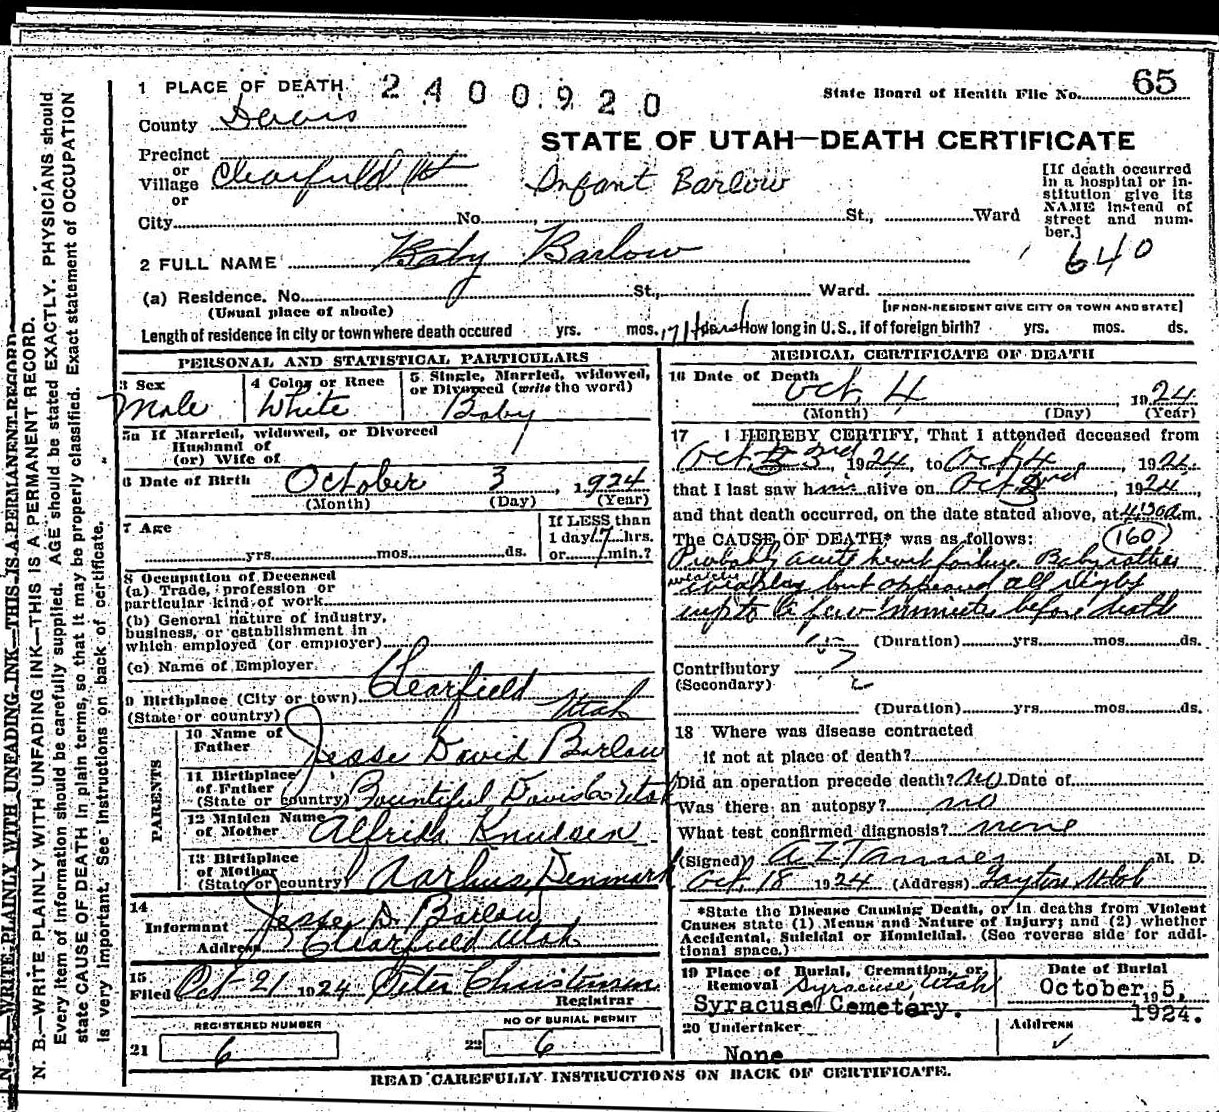 1 PLACE OF DEATH 2400920
State Board of Health File No. 65
County Davis
STATE OF UTAH—DEATH CERTIFICATE
Precinct
or
Village Clearfield Ut
or
Infant Barlow
[If death occurred in a hospital or institution give its NAME instead of street and number.]
City No. St., Ward
640
2 FULL NAME Baby Barlow
(a) Residence. No. St., Ward.
(Usual place of abode) [IF NON-RESIDENT GIVE CITY OR TOWN AND STATE]
Length of residence in city or town where death occured yrs. mos. 17 Hours How long in U.S., if of foreign birth? yrs. mos. ds.
PERSONAL AND STATISTICAL PARTICULARS
3 Sex
Male
4 Color or Race
White
5 Single, Married, widowed, or Divorced (write the word)
Baby
5a If Married, widowed, or Divorced
Husband of
(or) Wife of
6 Date of Birth October 3, 1924
(Month) (Day) (Year)
7 Age
yrs. mos. ds.
If LESS than
1 day 17 hrs.
or min.?
8 Occupation of Deceased
(a) Trade, profession or
particular kind of work
(b) General nature of industry,
business, or establishment in
which employed (or employer)
(c) Name of Employer
9 Birthplace (City or town) Clearfield
(State or country) Utah
PARENTS
10 Name of
Father Jesse David Barlow
11 Birthplace
of Father
(State or country) Bountiful, Davis Co Utah
12 Maiden Name
of Mother Alfrida Knudsen
13 Birthplace
of Mother
(State or country) Aarhus, Denmark
14
Informant Jesse D. Barlow
Address Clearfield Utah
15
Filed Oct 21 1924 Peter Christensen
Registrar
REGISTERED NUMBER
21 6
NO OF BURIAL PERMIT
22 6
MEDICAL CERTIFICATE OF DEATH
16 Date of Death
Oct. 4, 1924
(Month) (Day) (Year)
17 I HEREBY CERTIFY, That I attended deceased from
Oct 3rd, 1924, to Oct 4, 1924
that I last saw him alive on Oct 3rd, 1924,
and that death occurred, on the date stated above, at 4:30 a.m.
The CAUSE OF DEATH* was as follows: (160)
Probably acute heart failure Baby rather
but appeared all right
up to a few minutes before death
(Duration) yrs. mos. ds.
Contributory ?
(Secondary)
(Duration) yrs. mos. ds.
18 Where was disease contracted
if not at place of death?
Did an operation precede death? no Date of
Was there an autopsy? no
What test confirmed diagnosis? none
(Signed) A Z Tanner M. D.
Oct. 18 1924 (Address) Layton Utah
*State the Disease Causing Death, or in deaths from Violent
Causes state (1) Menus and Nature of Injury; and (2) whether
Accidental, Suicidal or Homicidal. (See reverse side for additional space.)
19 Place of Burial, Cremation, or
Removal Syracuse Utah
Syracuse Cemetery.
Date of Burial
October 5, 19
1924.
20 Undertaker
None
Address
READ CAREFULLY INSTRUCTIONS ON BACK OF CERTIFICATE.
N. B.—WRITE PLAINLY WITH UNFADING INK—THIS IS A PERMANENT RECORD
N. B.—WRITE PLAINLY WITH UNFADING INK—THIS IS A PERMANENT RECORD.
Every item of information should be carefully supplied. AGE should be stated EXACTLY. PHYSICIANS should
state CAUSE OF DEATH in plain terms, so that it may be properly classified. Exact statement of OCCUPATION
is very important. See instructions on back of certificate.